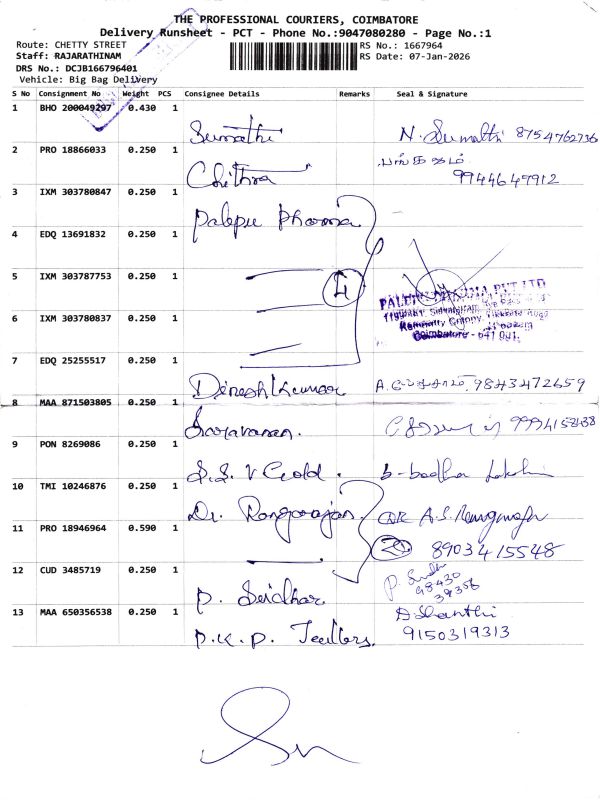 THE PROFESSIONAL COURIERS, COIMBATORE
Delivery Runsheet - PCT - Phone No.:9047080280 - Page No.:1
Route: CHETTY STREET
RS No.: 1667964
Staff: RAJARATHINAM
RS Date: 07-Jan-2026
DRS No.: DCJB166796401
Vehicle: Big Bag Delivery
S No Consignment No Weight PCS Consignee Details Remarks Seal & Signature
1 BHO 200049297 0.430 1 Sumathi N. Sumathi 8754762736
2 PRO 18866033 0.250 1 Chithra 9944647912
3 IXM 303780847 0.250 1 Palepu Pharma
4 EDQ 13691832 0.250 1
5 IXM 303787753 0.250 1 4
PALEPU PHARMA PVT LTD
6 IXM 303780837 0.250 1
Coimbatore - 641 001.
7 EDQ 25255517 0.250 1 Dinesh Kumar 9843472659
8 MAA 871503805 0.250 1 Saravanan.
9 PON 8269086 0.250 1 S.S. V Gold.
10 TMI 10246876 0.250 1 Dr. Rangarajan
11 PRO 18946964 0.590 1 2 8903415548
12 CUD 3485719 0.250 1 P. Sridhar
13 MAA 650356538 0.250 1 P.K.P. Jewllers. 9150319313